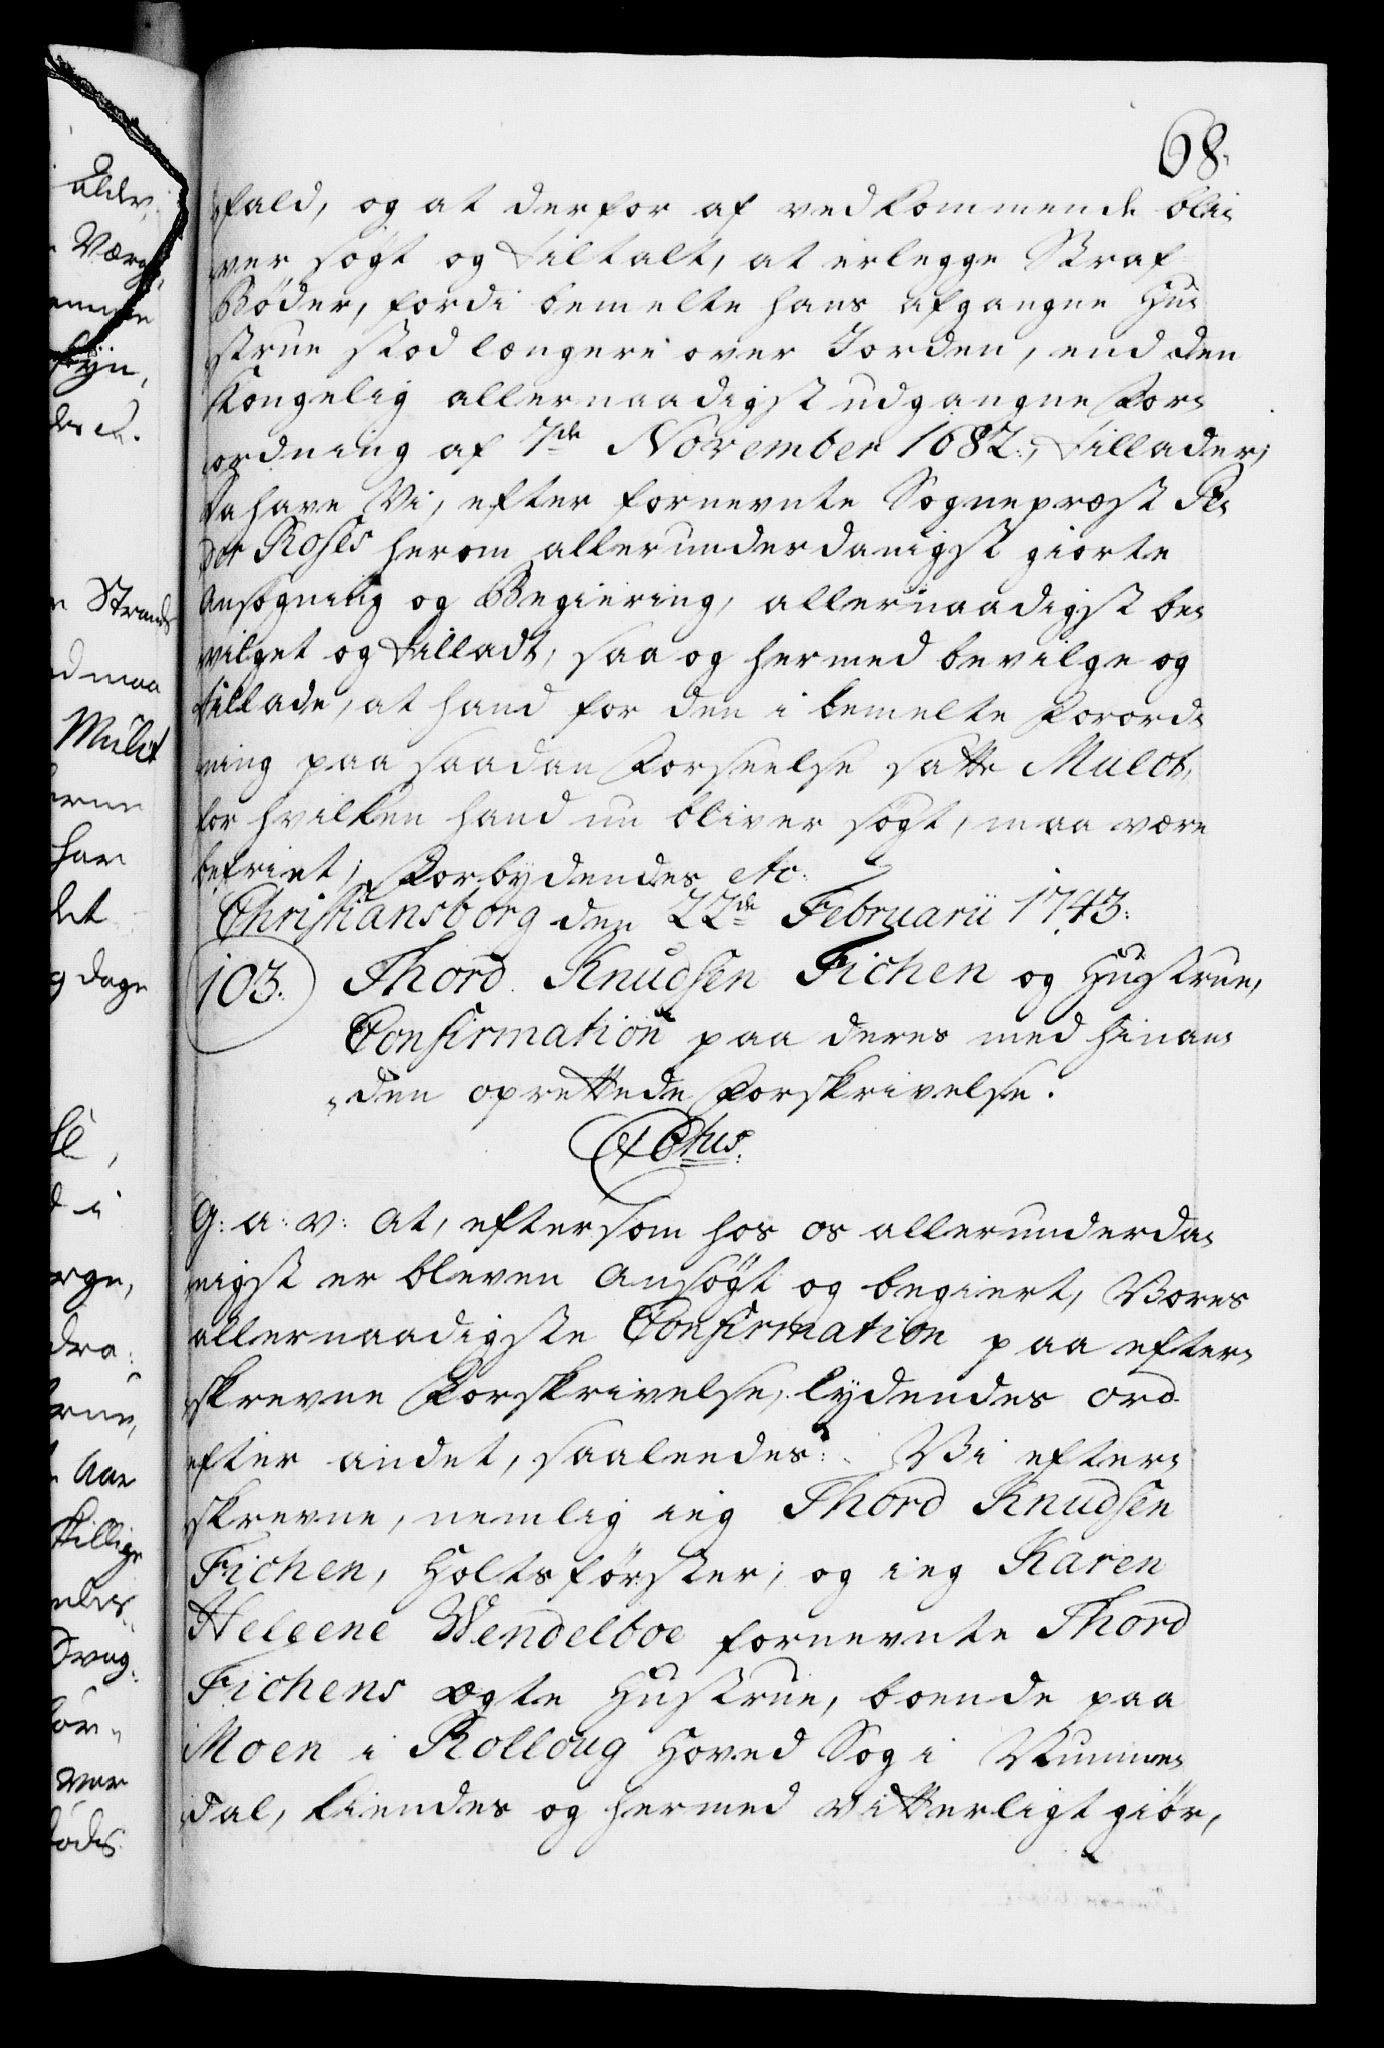 68.
fald, og at derfor af vedkommende bli-
ver søgt og tiltalt, at erlegge Straf-
Bøder, fordi bemelte hans afgangne Hu-
strue stod længere over Jorden, end den
Kongelig allernaadigst udgangne For-
ordning af 7de November 1682., tillader;
Da have Vi, efter fornevnte Sognepræst Pe-
der Roses herom allerunderdanigst giorte
Ansøgning og Begiering, allernaadigst be-
vilget og tilladt, saa og hermed bevilge og
tillade, at hand for den i bemelte Forord-
ning paa saadan Forseelse satte Mulct,
for hvilken hand nu bliver søgt, maa være
befriet; Forbydendes etc.
Christiansborg den 22de Februarii 1743.
103. Thord Knudsen Fichen og Hustrue,
Confirmation paa deres med hinan-
den oprettede Forskrivelse.
C 6tus.
G: a: v: At, eftersom hos os allerunderda-
nigst er bleven Ansøgt og begiert, Vores
allernaadigste Confirmation paa efter-
skrevne Forskrivelse, lydendes ord
efter andet, saaleedes: Vi efter-
skrevne, nemlig ieg Thord Knudsen
Fichen, Holtsförster, og ieg Karen
Heleene Wendelboe fornevnte Thord
Fichens ægte Hustrue, boende paa
Moen i Rolloug Hoved Sogn i Numme-
dal, kiendes og hermed vitterligt giør,